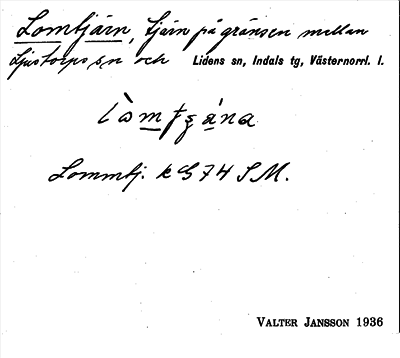 Lomtjärn, tjärn på gränsen mellan
Ljustorps sn och Lidens sn, Indals tg, Västernorrl. l.
Lommtj. k G 74 S M.
VALTER JANSSON 1936